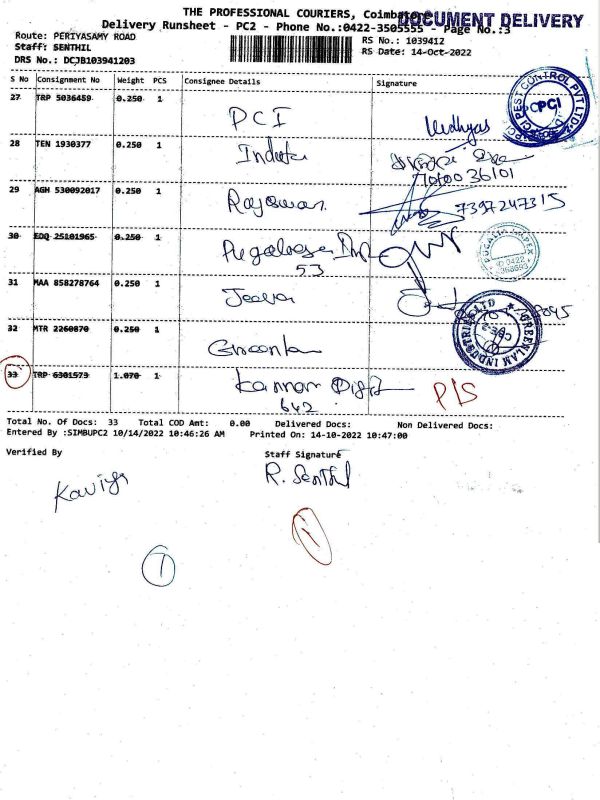 THE PROFESSIONAL COURIERS, Coimbatore
DOCUMENT DELIVERY
Delivery Runsheet - PC2 - Phone No.:0422-3505555 - Page No.:3
Route: PERIYASAMY ROAD
RS No.: 1039412
Staff: SENTHIL
RS Date: 14-Oct-2022
DRS No.: DCJB103941203
S No Consignment No Weight PCS Consignee Details Signature
27 TRP 5036489 0.250 1 PCI Vidhyas
PCI PEST CONTROL PVT LTD PCI
28 TEN 1930377 0.250 1
36101
29 AGH 530092017 0.250 1 7397247315
30 EDQ 25101965 0.250 1
53
31 MAA 858278764 0.250 1 Jeeva
GREENLAM INDUSTRIES LTD
32 MTR 2260870 0.250 1
33 TRP 6301573 1.070 1 Kannan P/S
642
Total No. Of Docs: 33 Total COD Amt: 0.00 Delivered Docs: Non Delivered Docs:
Entered By :SIMBUPC2 10/14/2022 10:46:26 AM Printed On: 14-10-2022 10:47:00
Verified By Staff Signature
Kaviya R. Senthil
7 1